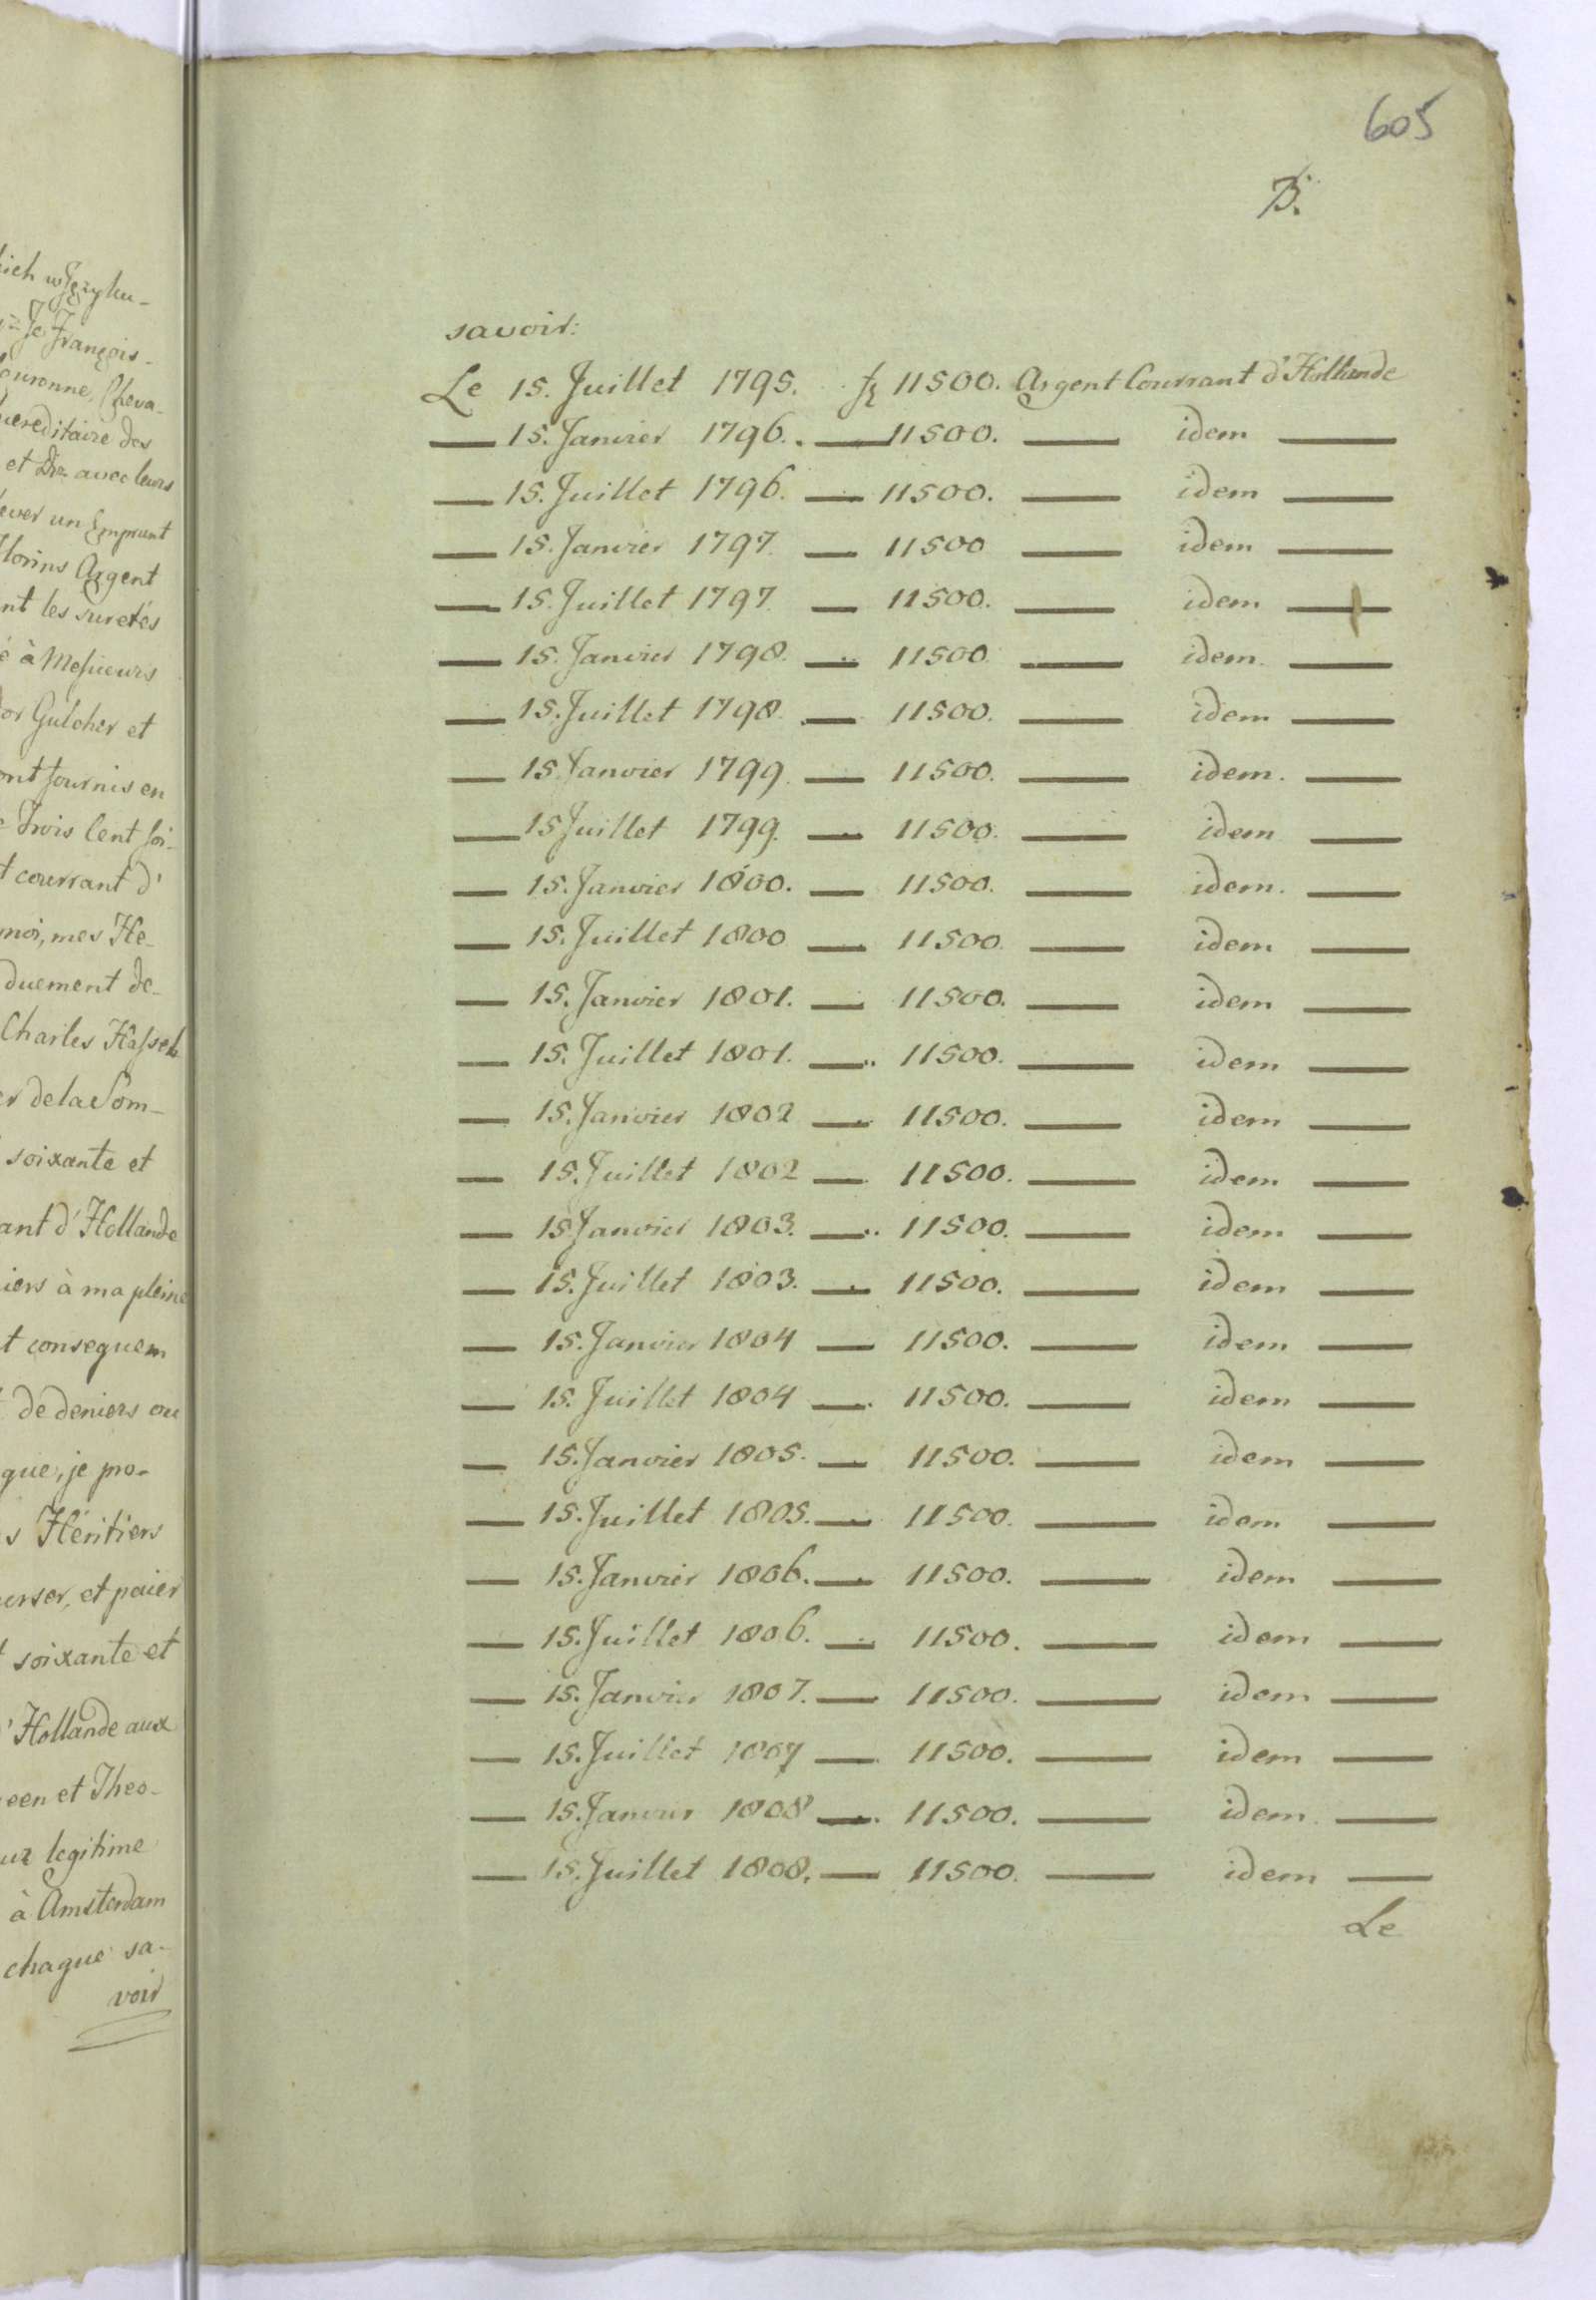 ich w Języku-
Je François-
ouronne, Cheva-
hereditaire des
et Dre avec leurs
lever un Emprunt
florins Argent
nt les suretés
é à Messieurs
or Gulcher et
ont fournis en
Trois Cent soi-
t courrant d'
moi, mes He-
duement de-
Charles Hassel
er de la Som-
soixante et
ant d'Hollande
iers à ma pleine
t consequem
de deniers ou
que, je pro-
s Héritiers
erser, et paier
soixante et
d'Hollande aux
een et Theo-
ur legitime
à Amsterdam
chaque sa-
voir
605
B.
savoir:
Le 15. Juillet 1795. f 11500. Argent Courrant d'Hollande
— 15. Janvier 1796. — 11500. — idem —
— 15. Juillet 1796. — 11500. — idem —
— 15. Janvier 1797. — 11500 — idem —
— 15. Juillet 1797. — 11500. — idem —
— 15. Janvier 1798. — 11500 — idem. —
— 15. Juillet 1798. — 11500. — idem —
— 15 Janvier 1799. — 11500. — idem. —
— 15 Juillet 1799. — 11500. — idem —
— 15. Janvier 1800. — 11500. — idem. —
— 15. Juillet 1800 — 11500. — idem —
— 15. Janvier 1801. — 11500. — idem —
— 15. Juillet 1801. — 11500. — idem —
— 15. Janvier 1802 — 11500. — idem —
— 15. Juillet 1802 — 11500. — idem —
— 15 Janvier 1803. — 11500. — idem —
— 15. Juillet 1803. — 11500. — idem —
— 15. Janvier 1804 — 11500. — idem —
— 15. Juillet 1804 — 11500. — idem —
— 15. Janvier 1805. — 11500. — idem —
— 15. Juillet 1805. — 11500. — idem —
— 15. Janvier 1806. — 11500. — idem —
— 15. Juillet 1806. — 11500. — idem —
— 15. Janvier 1807. — 11500. — idem —
— 15. Juillet 1807 — 11500. — idem —
— 15. Janvier 1808 — 11500. — idem. —
— 15. Juillet 1808. — 11500. — idem —
Le